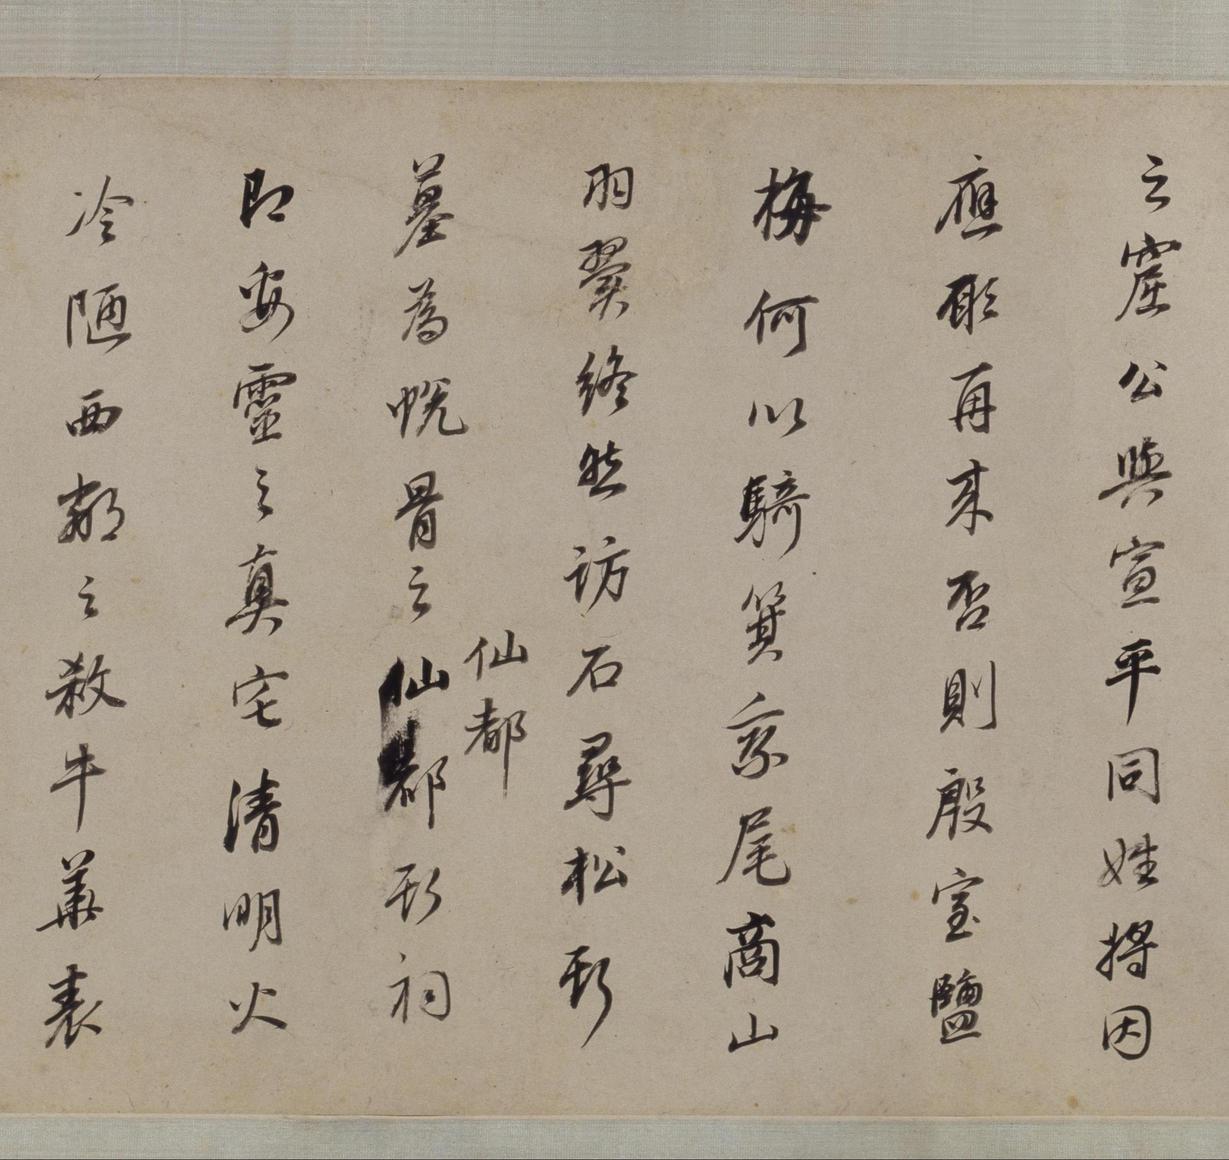 之窟公與宣平同姓將因
應形再来否則殷室鹽
梅何以騎箕糸尾商山
羽翼終然訪石尋松形
墓為帨骨之仙都形祠
仙都
即安靈之真宅清明火
冷陋西鄰之殺牛華表